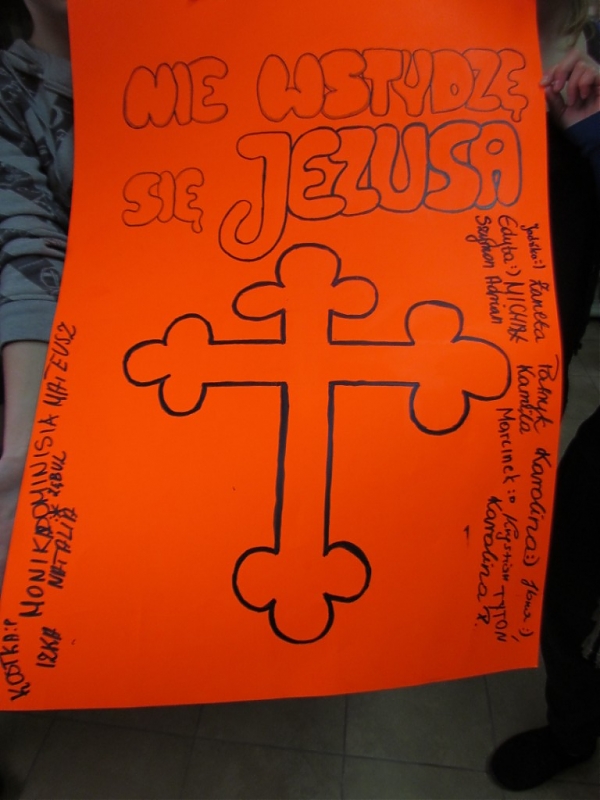 NIE WSTYDZĘ
SIĘ JEZUSA
Żaneta Patryk Karolina:)
Edyta:) MICHAŁ Kamila
Szymon Adrian Marcinek:D Krystian TYTOŃ
Karolina R.
MONIKA DOMINISIA MATEUSZ
IZKA NATALIA
KOTKA:P